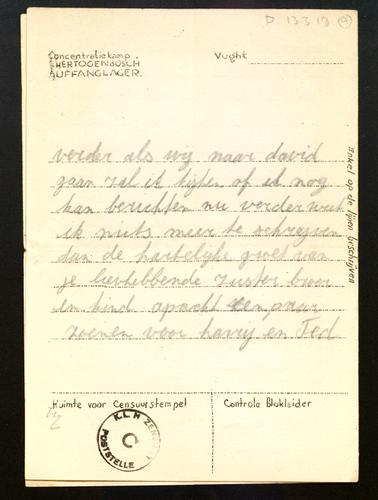 D 1339 (9)
Concentratiekamp
S'HERTOGENBOSCH
AUFFANGLAGER.
Vught
Enkel op de lijnen beschrijven
verder als wij naar david
gaan zal ik kijken of ik nog
kan berichten nu verder weet
ik niets meer te schrijven
dan de hartelijke groet van
je liefhebbende zuster broer
en kind apacht een paar
zoenen voor harry en Ted
Ruimte voor Censuurstempel
Controle Blokleider
K.L.H ZENSUR
C
POSTSTELLE